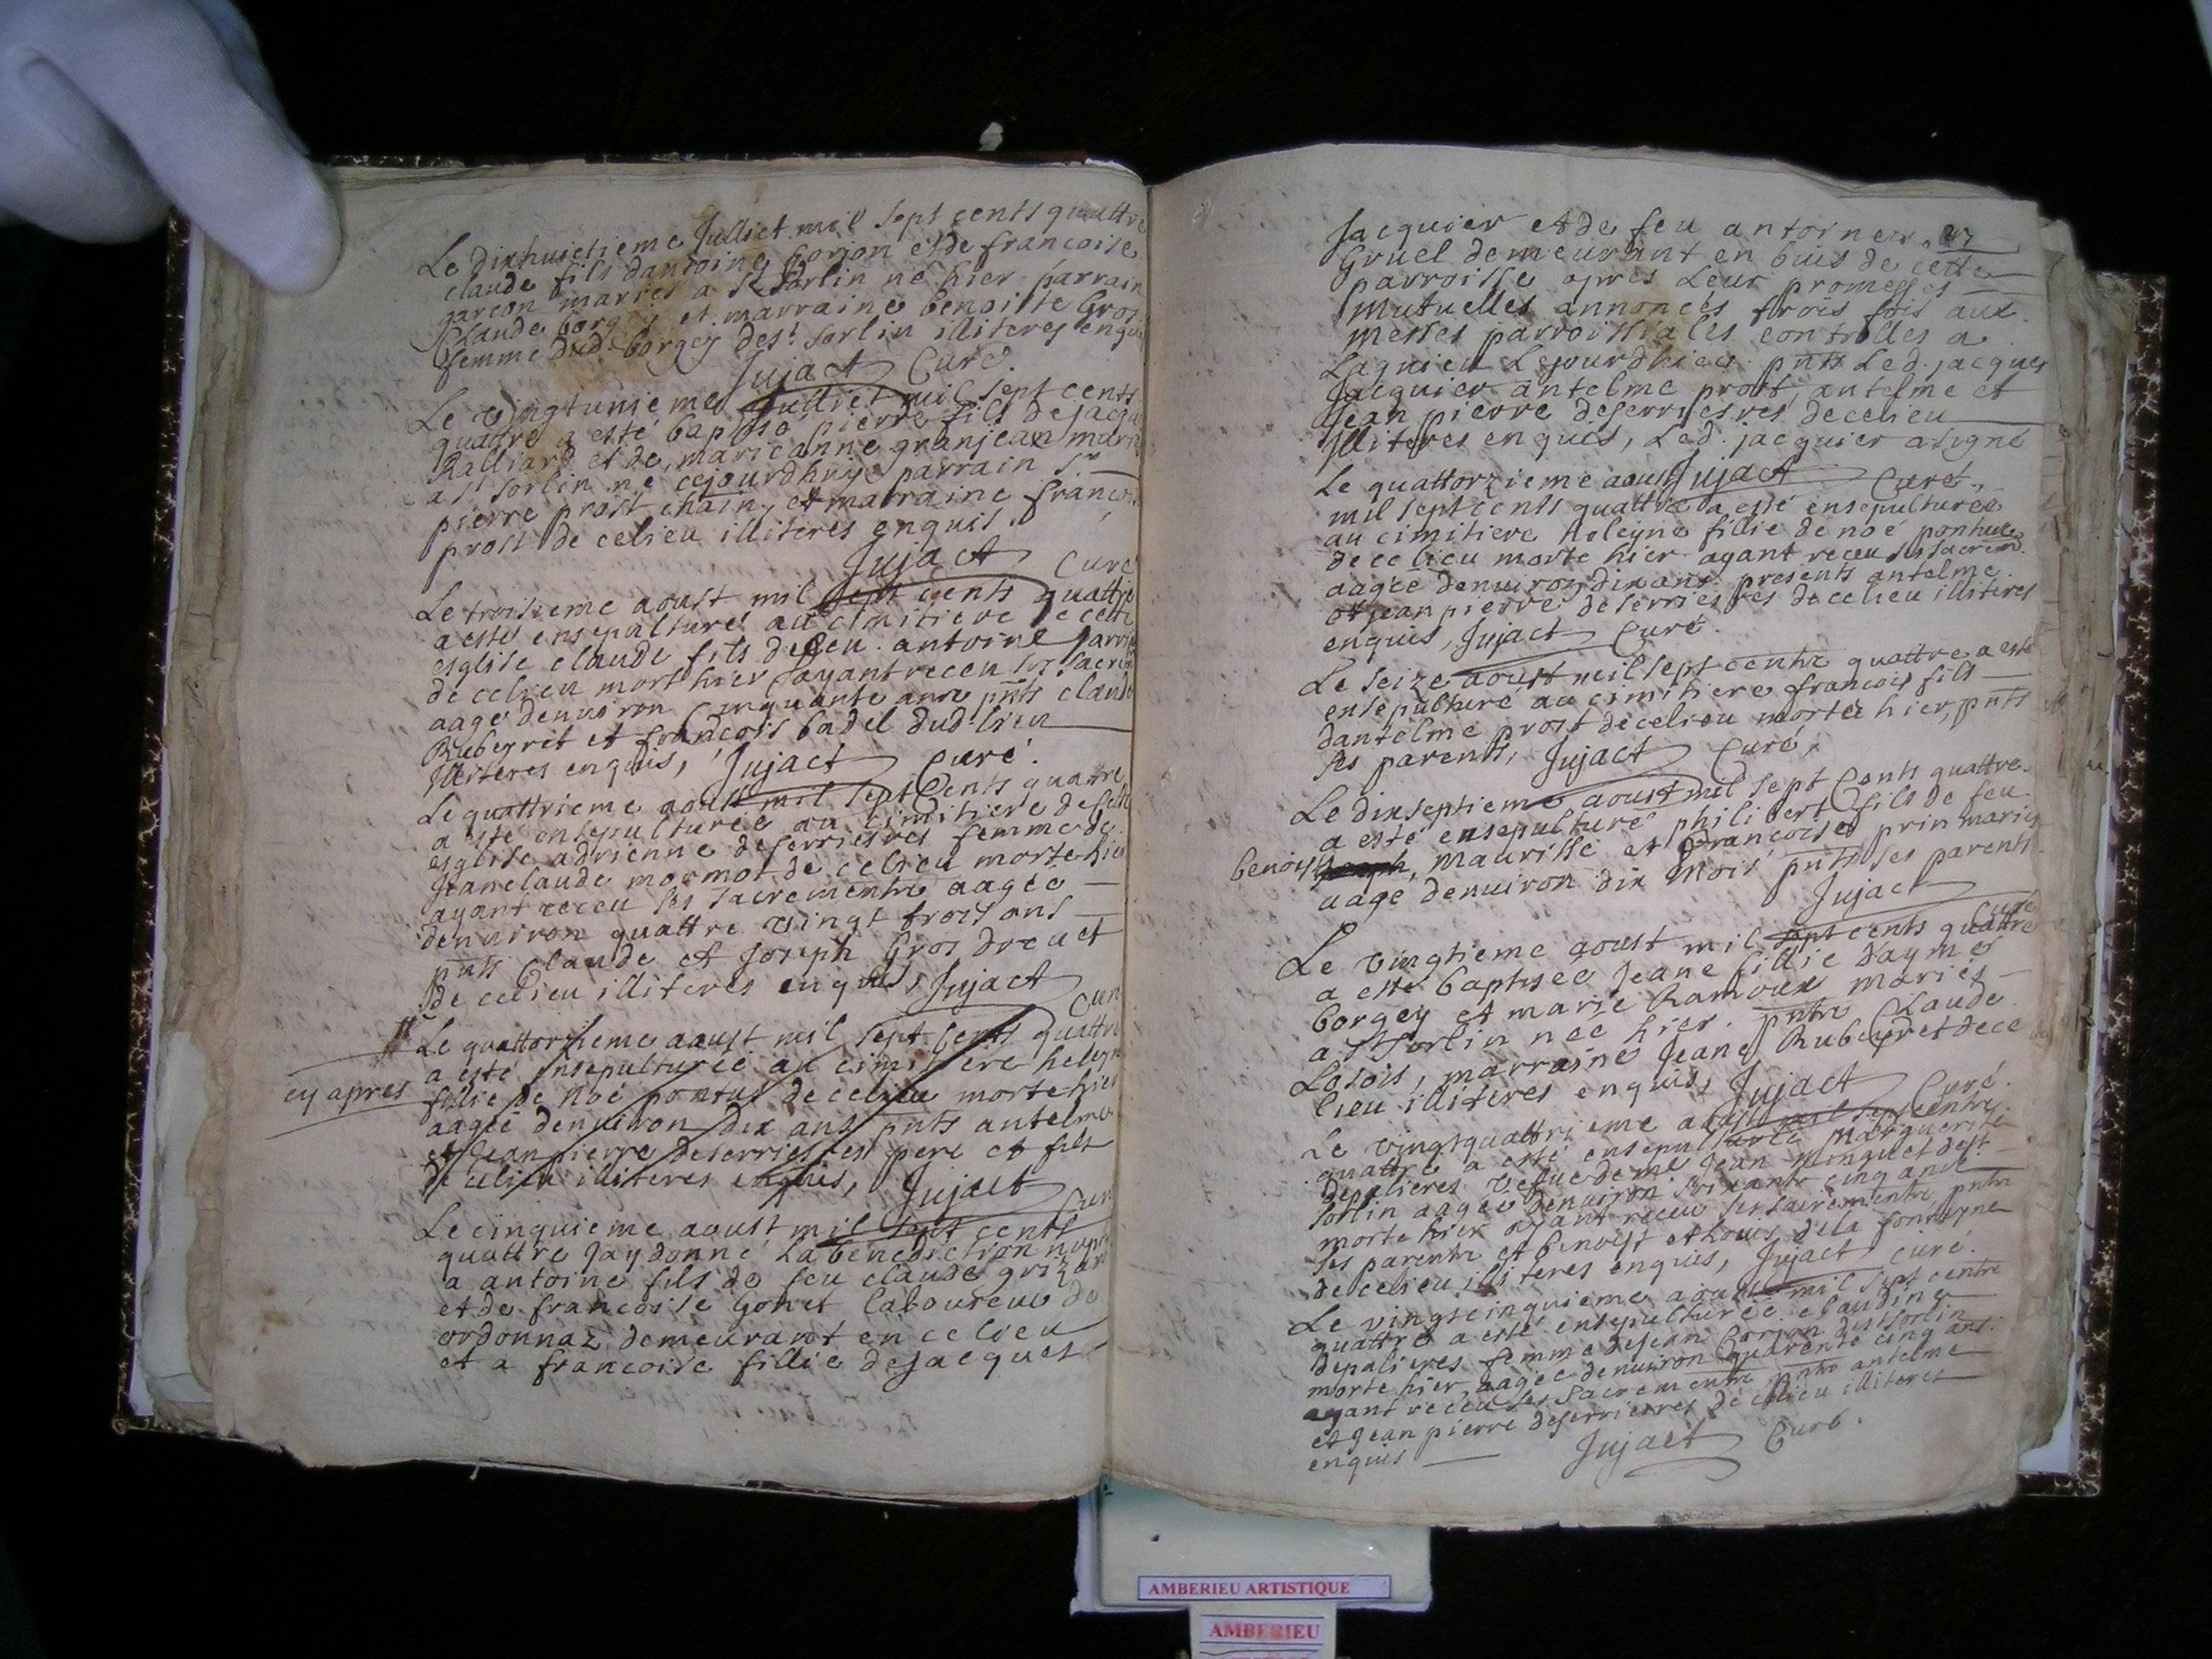 Le dixhuictieme Julliet mil sept cents quattre
claude fils dantoine borjon et de francoise
garcon mariés a St Sorlin né hier parrain
Claude borgey et marraine benoiste Gros
femme dud. borgey de st. Sorlin illiteres enquis
Jujact Curé.
Le vingtunieme Julliet mil sept cents
quatre a esté baptisé pierre fils de jacque
Ralliard et de marieanne granjean mariés
a St Sorlin né cejourdhuy parrain Sr.
pierre prost chain, et marraine francoise
prost de celieu illiteres enquis.
Jujact Curé
Le troisieme aoust mil sept cents quattre
a esté ensepulturé au cimitiere de cette
esglise claude fils de feu antoine
de celieu mort hier ayant receu ses sacrem
aagé denuiron Cinquante ans pnts claude
Rubeyret et francois badel dud. lieu
Illiteres enquis, Jujact Curé.
Le quattrieme aoust mil sept Cents quattre
a esté ensepulturée au cimitiere de cette
esglise adrienne deserriesres femme de
Jeanclaude mormot de celieu morte hier
ayant receu ses sacrements aagée
denuiron quattre vingt trois ans
pnts Claude et Joseph Gros drevet
de celieu illiteres enquis, Jujact Curé
Le quattorzieme aoust mil sept cents quattre
a esté ensepulturée au cimitiere heleyne
cy apres
fillie de Noé pontus de celieu morte hier
aagée denuiron dix ans pnts antelme
et Jean pierre deserriesres pere et fils
de celieu illiteres enquis, Jujact Curé
Le cinquieme aoust mil sept cents
quattre Jay donné la benediction nuptia
a antoine fils de feu claude grizar
et de francoise Gonet laboureur de
ordonnaz demeurant en celieu
et a francoise fillie de Jacques
Jacquier et de feu antoinette
Gruel demeurant en buis de cette
parroisse apres leur promesses
mutuelles annoncés trois fois aux
messes parroissiales controlles a
Lagnieu Lejourdhier pnts Led. jacques
Jacquier antelme prost, antelme et
Jean pierre deserriesres de celieu
Illiteres enquis, Led. jacquier a signé
Jujact Curé.
Le quattorzieme aoust
mil sept cents quattre a esté ensepulturée
au cimitiere heleyne fillie de noé pontus
de ce lieu morte hier ayant receu ses sacrem.
aagée denuiron dix ans presents antelme
et jean pierre deserriesres de celieu illiteres
enquis, Jujact Curé.
Le seize aoust mil sept cents quattre a esté
ensepulturé au cimitiere francois fils
dantelme prost de celieu mort hier, pnts
ses parents, Jujact Curé,
Le dixseptieme aoust mil sept Cents quattre
a esté ensepulturé philibert fils de feu
benoist maurisse et francoise prin mariés
aagé denuiron dix mois pnts ses parents
Jujact Curé
Le vingtieme aoust mil sept cents quattre
a esté baptisée Jeane fillie daymé
borgey et marie Ramoux mariés
a St Sorlin née hier. pnts Claude
Losois, marraine Jeane Rubeyret de ce
lieu illiteres enquis, Jujact Curé.
Le vingtquattrieme aoust mil sept cents
quattre a esté ensepulturée Marguerite
depalieres vefue de me Jean Minguet de st.
Sorlin aagée denuiron soixante cinq ans
morte hier ayant receu ses sacrements pnts
ses parents et benoist et Louis dela fonteyne
de celieu illiteres enquis, Jujact Curé.
Le vingtcinquieme aoust mil sept cents
quattre a esté ensepulturée claudine
depalieres femme de Jean borjon de st Sorlin
morte hier, aagée denuiron quarente cinq ans
ayant receu ses sacrements pnts antelme
et Jean pierre deserriesres de celieu illiteres
enquis Jujact Curé.
AMBERIEU ARTISTIQUE
AMBERIEU